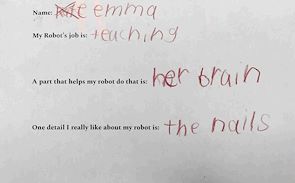 Name: emma
My Robot's job is: teaching
A part that helps my robot do that is: her brain
One detail I really like about my robot is: the nails